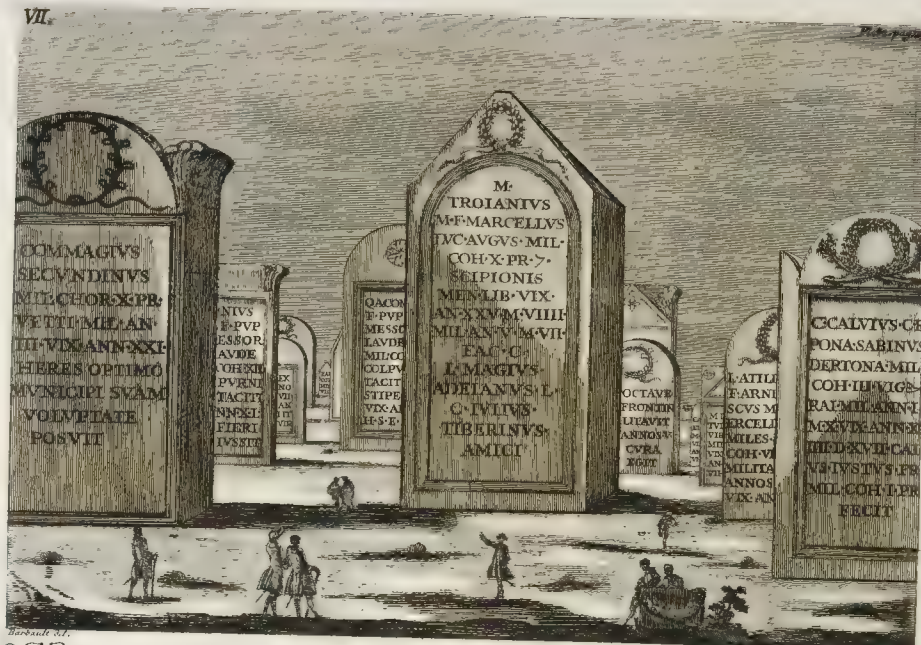 VII.
COMMAGIVS
SECVNDINVS
MIL·CHOR·X·PR·
VETTI·MIL·AN
III·VIX·ANN·XXI·
HERES OPTIMO
MVNICIPI SVAM
VOLVPTATE
POSVIT
NIVS
F·PVP
ESSOR
AVDE
COH·XII
PVRNI
TACIT
NNXI·
FIERI
IVSSIT
QACON
F·PVP
MESSO
LAVDE
MIL·CO
COLPV
TACIT
STIPE
VIX·A
H·S·E·
M·
TROIANIVS
M·F·MARCELLVS
LVC·AVGVS·MIL·
COH·X·PR·7·
SCIPIONIS
MEN·LIB·VIX·
AN·XXV·M·VIIII
MIL·AN·V·M·VII·
FAC·C·
L·MAGIVS·
ADEIANVS·L·
C·IVLIVS·
TIBERINVS·
AMICI
OCTAVE
FRONTIN
LITAVIT
ANNOS·V·
CVRA
EGIT
L·ATILI
F·ARNI
SCVS M
ERCELI
MILES·
COH·VI
MILITA
ANNOS
VIX·AN
C·CALVIVS·C·F
PONA·SABINVS
DERTONA·MIL
COH·III·VIG·
RAI·MIL·ANN·I
M·X·VIX·ANN·X
III·D·XVII·CAL
VS·IVSTVS·PR
MIL·COH·I·PR
FECIT
Barbault